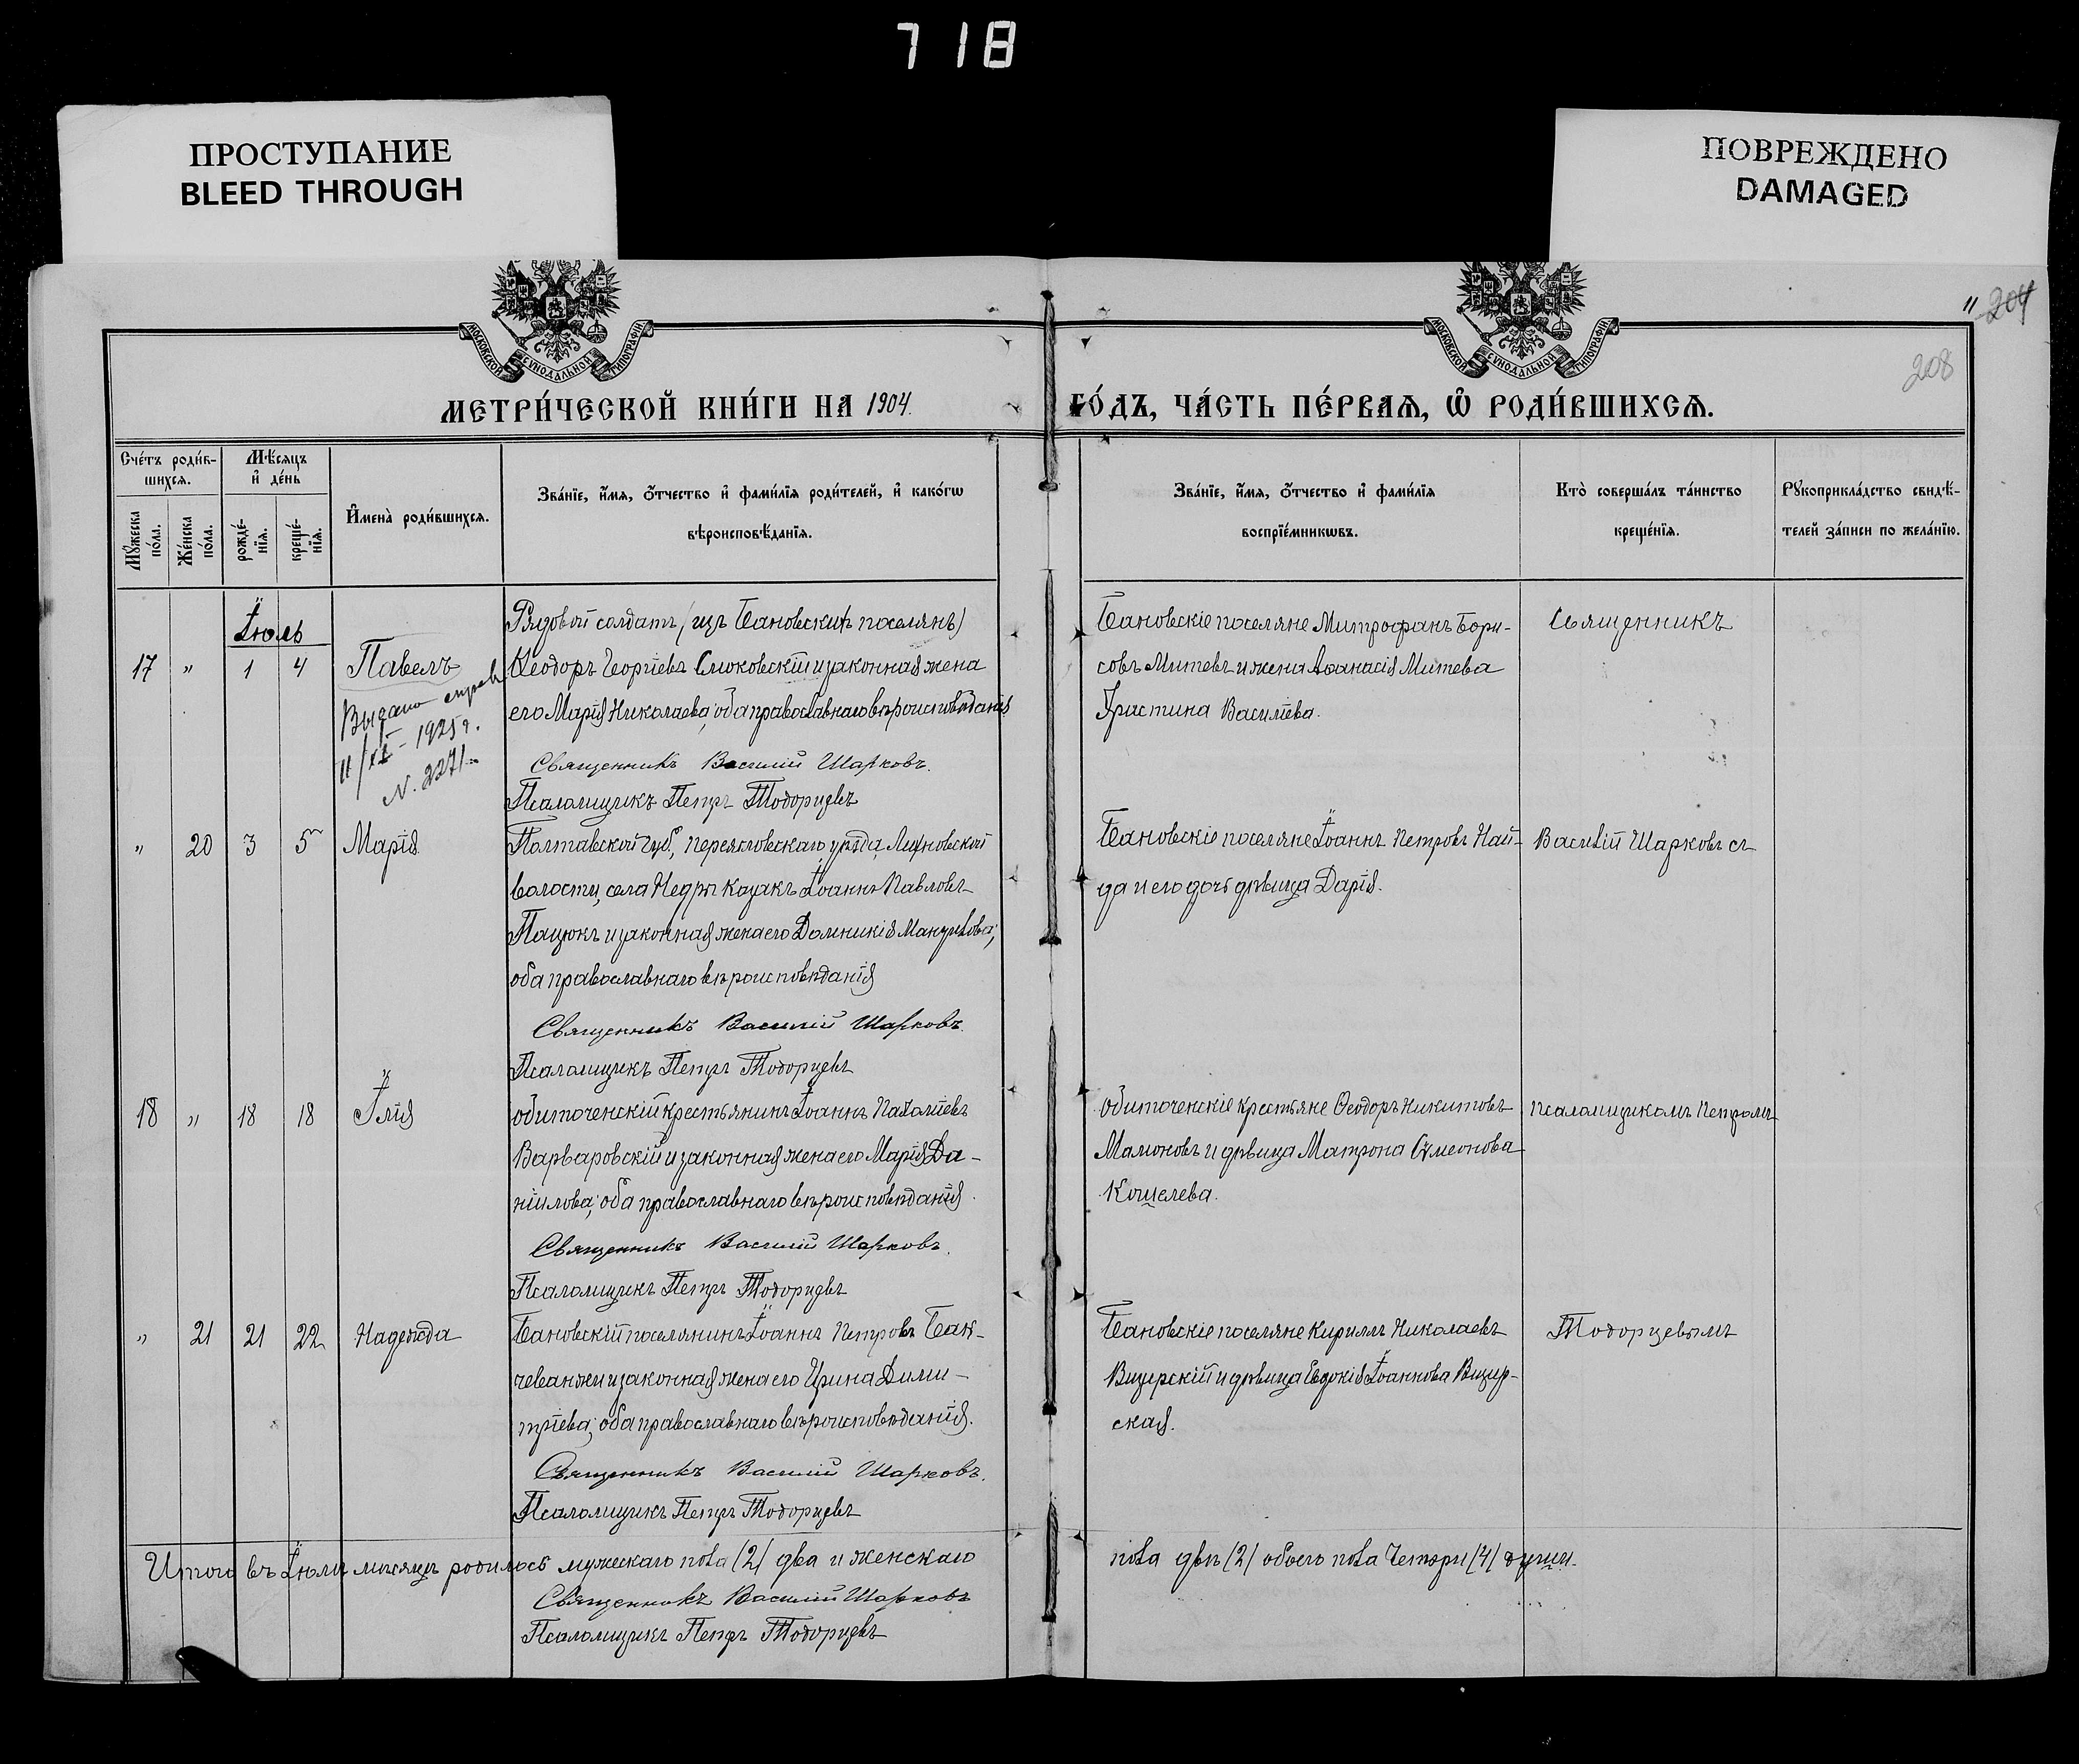 718
ПРОСТУПАНИЕ
BLEED THROUGH
ПОВРЕЖДЕНО
DAMAGED
МОСКОВСКОЙ СУНОДАЛЬНОЙ ТИПОГРАФІИ
МОСКОВСКОЙ СУНОДАЛЬНОЙ ТИПОГРАФІИ
204
208
МЕТРИ́ЧЕСКОЙ КНИ́ГИ НА 1904.
ГО́ДЪ, ЧА́СТЬ ПЕ́РВАѦ, Ѽ РОДИ́ВШИХСѦ.
Сче́тъ роди́в-
шихсѧ.
Мѣ́сѧцъ
и҆ де́нь
Мꙋ́жеска по́ла.
Же́нска по́ла.
рожде́-нїѧ.
креще́-нїѧ.
И҆мена̀ роди́вшихсѧ.
Зва́нїе, и҆́мѧ, ѻ҆́тчество и҆ фами́лїѧ роди́телей, и҆ како́гѡ
вѣроисповѣ́данїѧ.
Зва́нїе, и҆́мѧ, ѻ҆́тчество и҆ фами́лїѧ
воспрїе́мникѡвъ.
Кто̀ соверша́лъ та́инство
креще́нїѧ.
Рꙋкоприкла́дство свидѣ́-
телей за́писи по жела́нїю.
Іюль
17 " 1 4 Павелъ
Выдано справ
11/XI - 1925г.
N. 2271
Рядовой солдатъ (изъ Бановскихъ поселянъ)
Ѳеодоръ Георгіевъ Слюковскій и законная жена
его Марія Николаева; оба православнаго вѣроисповѣданія
Священникъ Василій Шарковъ.
Псаломщикъ Петръ Тодорцевъ
Бановскіе поселяне Митрофанъ Бори-
совъ Митевъ и жена Аѳанасія Митева
Христина Василіева.
Священникъ
" 20 3 5 Марія
Полтавской губ., Переясловскаго уѣзда,
волости, села Недры казакъ Іоаннъ Павловъ
Пацюкъ и законная жена его Домникія Мануилова;
оба православнаго вѣроисповѣданія
Священникъ Василій Шарковъ.
Псаломщикъ Петръ Тодорцевъ
Бановскіе поселяне Іоаннъ Петровъ Най-
да и его дочь дѣвица Дарія.
Василій Шарковъ съ
18 " 18 18 Илія
Обиточенскій крестьянинъ Іоаннъ Пахоміевъ
Варваровскій и законная жена его Марія Да-
ніилова; оба православнаго вѣроисповѣданія.
Священникъ Василій Шарковъ.
Псаломщикъ Петръ Тодорцевъ
Обиточенскіе крестьяне Ѳеодоръ Никитовъ
Мамоновъ и дѣвица Матрона Сумеонова
Кошелева.
псаломщикомъ Петромъ
" 21 21 22 Надежда
Бановскій поселянинъ Іоаннъ Петровъ Бак-
чеванжи и законная жена его Ирина Дими-
тріева; оба православнаго вѣроисповѣданія.
Священникъ Василій Шарковъ.
Псаломщикъ Петръ Тодорцевъ
Бановскіе поселяне Кириллъ Николаевъ
Визирскій и дѣвица Евдокія Іоаннова Визир-
ская.
Тодорцевымъ
Итого въ Іюлѣ мѣсяцѣ родилось мужескаго пола (2) два и женскаго
пола двѣ (2) обоего пола Четыри (4) души.
Священникъ Василій Шарковъ
Псаломщикъ Петръ Тодорцевъ